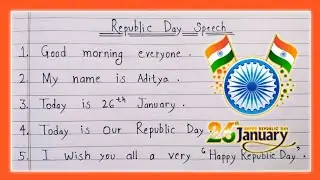 Republic Day Speech
1. Good morning everyone.
2. My name is Aditya.
3. Today is 26th January.
4. Today is Our Republic Day
5. I Wish you all a very "Happy Republic Day".
26th
HAPPY REPUBLIC DAY
January